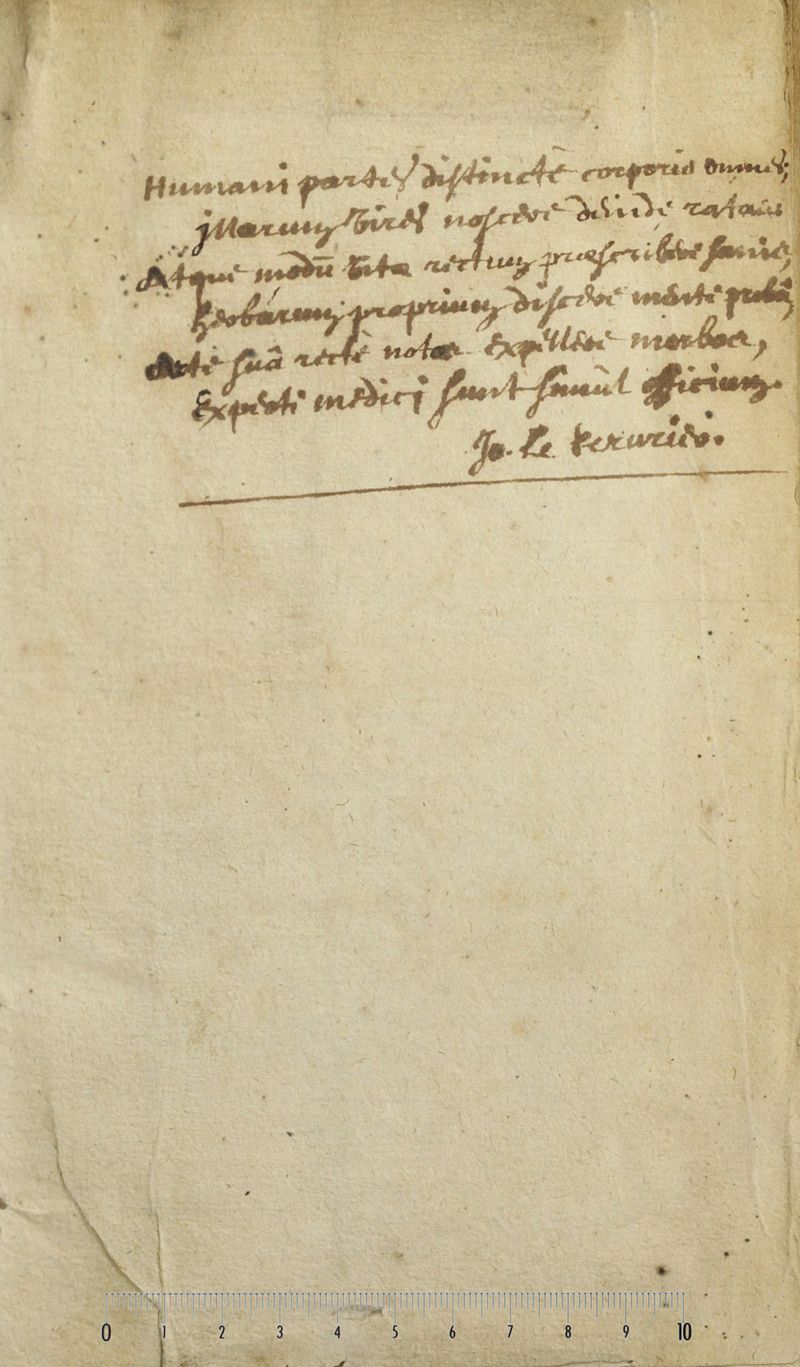 Humani partes distinctè corporis omnes;
jllarum vires noscere deinde ratas
Atque modū vitæ rectum præscribere sanis,
herbarum proprium discere mente
Arte suâ rectè notos expellere morbos,
Experti medici sunt simùl officium.
Jo. Le
0 1 2 3 4 5 6 7 8 9 10